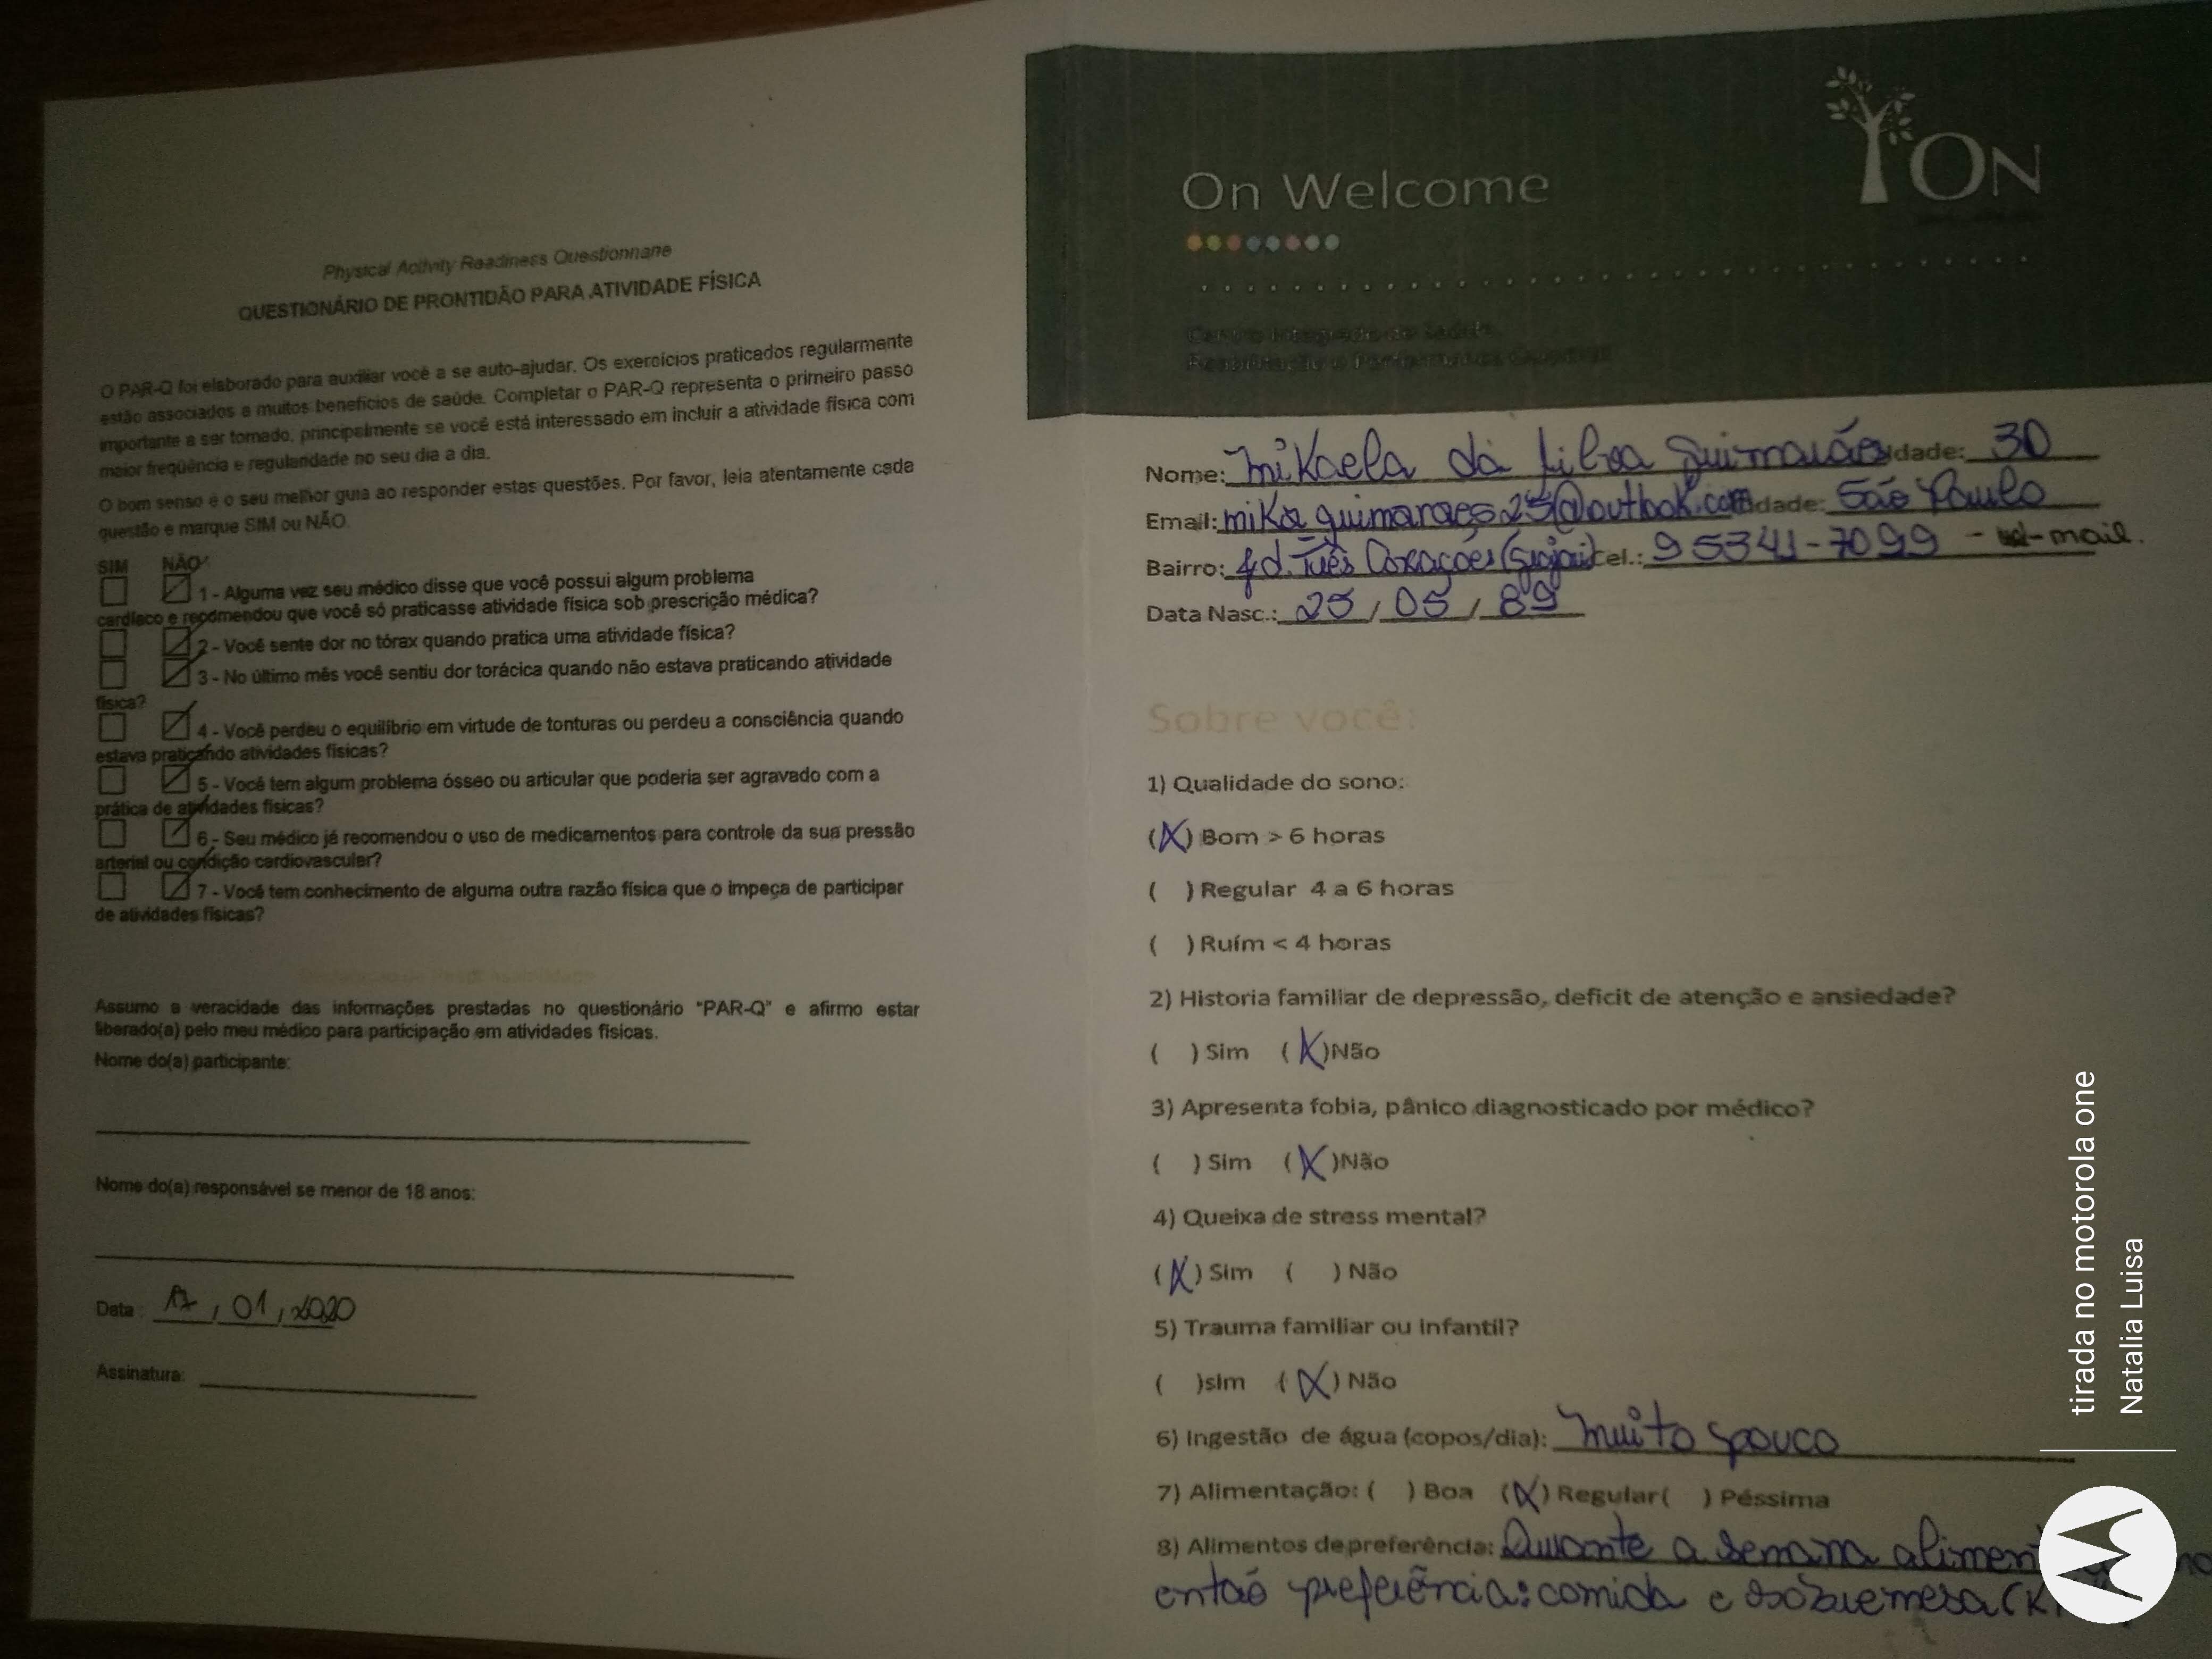 Physical Activity Readiness Questionnaire
QUESTIONÁRIO DE PRONTIDÃO PARA ATIVIDADE FÍSICA
O PAR-Q foi elaborado para auxiliar você a se auto-ajudar. Os exercícios praticados regularmente
estão associados a muitos benefícios de saúde. Completar o PAR-Q representa o primeiro passo
importante a ser tomado, principalmente se você está interessado em incluir a atividade física com
maior freqüência e regularidade no seu dia a dia.
O bom senso é o seu melhor guia ao responder estas questões. Por favor, leia atentamente cada
questão e marque SIM ou NÃO.
SIM NÃO
1 - Alguma vez seu médico disse que você possui algum problema
cardíaco e recomendou que você só praticasse atividade física sob prescrição médica?
2 - Você sente dor no tórax quando pratica uma atividade física?
3 - No último mês você sentiu dor torácica quando não estava praticando atividade
física?
4 - Você perdeu o equilíbrio em virtude de tonturas ou perdeu a consciência quando
estava praticando atividades físicas?
5 - Você tem algum problema ósseo ou articular que poderia ser agravado com a
prática de atividades físicas?
6 - Seu médico já recomendou o uso de medicamentos para controle da sua pressão
arterial ou condição cardiovascular?
7 - Você tem conhecimento de alguma outra razão física que o impeça de participar
de atividades físicas?
Assumo a veracidade das informações prestadas no questionário "PAR-Q" e afirmo estar
liberado(a) pelo meu médico para participação em atividades físicas.
Nome do(a) participante:
Nome do(a) responsável se menor de 18 anos:
Data: 17, 01, 2020
Assinatura:
On Welcome
ON
Nome: mikaela da Guimarães idade: 30
Email: mikaguimaraes25@outlook.com idade: São Paulo
Bairro: Jd. Três Corações cel.: 95341-7099 - mail.
Data Nasc.: 25 / 05 / 89
Sobre você:
1) Qualidade do sono:
(X) Bom > 6 horas
( ) Regular 4 a 6 horas
( ) Ruím < 4 horas
2) Historia familiar de depressão, deficit de atenção e ansiedade?
( ) Sim (X) Não
3) Apresenta fobia, pânico diagnosticado por médico?
( ) Sim (X) Não
4) Queixa de stress mental?
(X) Sim ( ) Não
5) Trauma familiar ou infantil?
( )sim (X) Não
6) Ingestão de água (copos/dia): muito pouco
7) Alimentação: ( ) Boa (X) Regular ( ) Péssima
8) Alimentos de preferência: Durante a semana
então preferência: comida e sobremesa
tirada no motorola one
Natalia Luisa